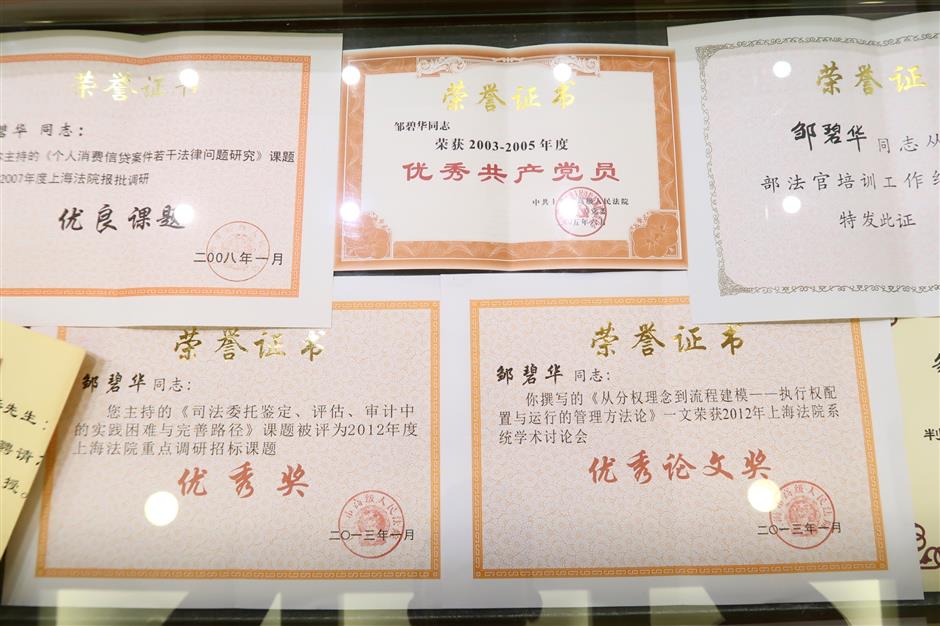 荣誉证书
碧华 同志：
主持的《个人消费信贷案件若干法律问题研究》课题
2007年度上海法院报批调研
优良课题
二00八年一月
荣誉证书
邹碧华同志
荣获2003-2005年度
优秀共产党员
中共上 高级人民法院
五年六月
荣誉证
邹碧华 同志从
部法官培训工作
特发此证
荣誉证书
邹碧华 同志：
您主持的《司法委托鉴定、评估、审计中
的实践困难与完善路径》课题被评为2012年度
上海法院重点调研招标课题
优秀奖
市高级人民法
二〇一三年一月
荣誉证书
邹碧华 同志：
你撰写的《从分权理念到流程建模——执行权配
置与运行的管理方法论》一文荣获2012年上海法院系
统学术讨论会
优秀论文奖
市高级人民法
二〇一三年一月
先生：
聘请
授。